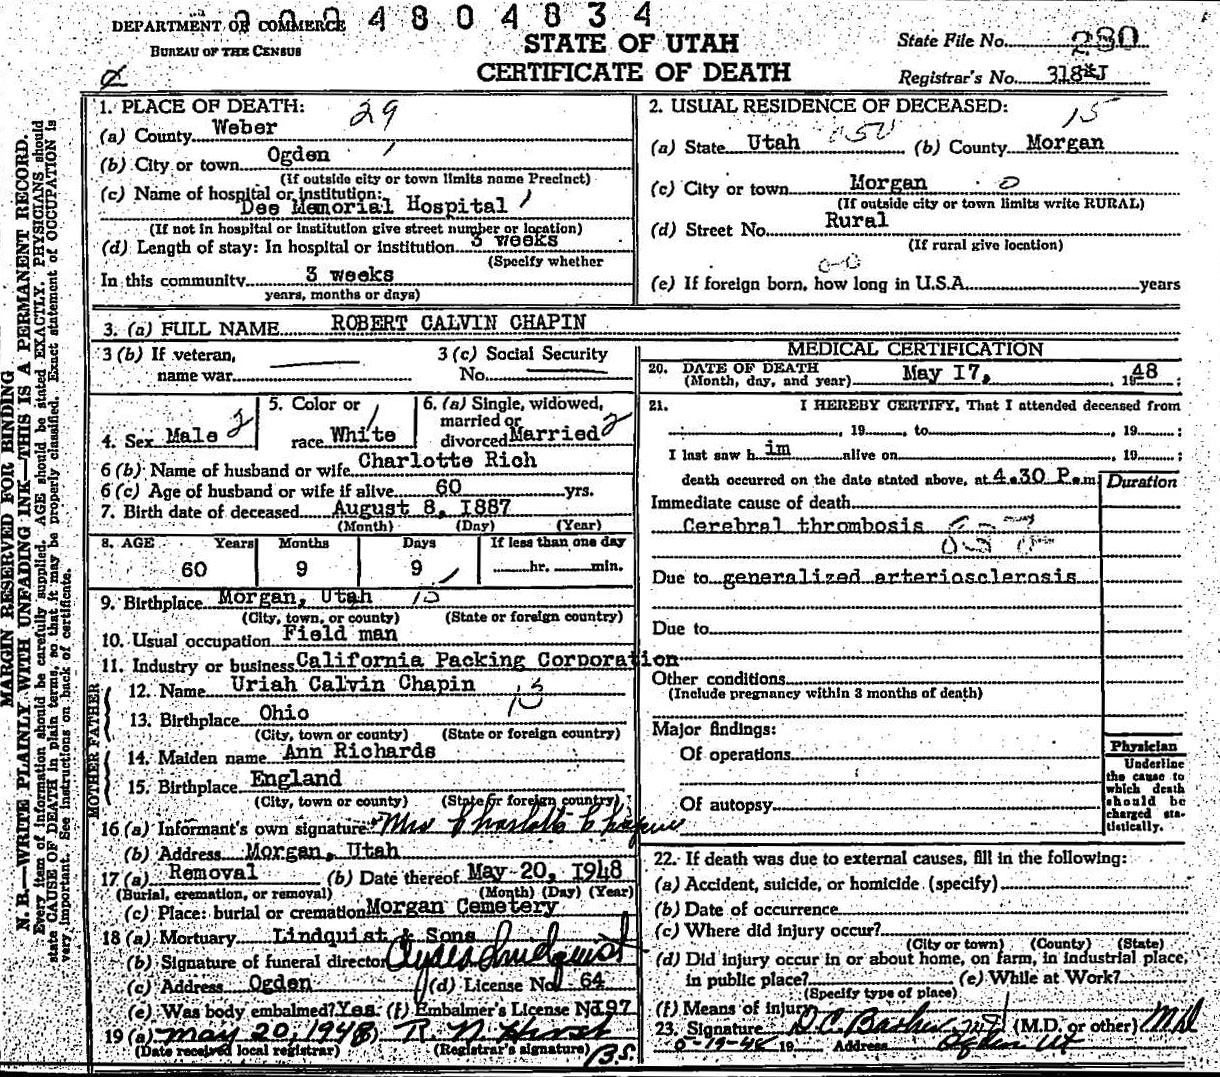 004804834
DEPARTMENT OF COMMERCE
BUREAU OF THE CENSUS
STATE OF UTAH
CERTIFICATE OF DEATH
State File No. 280
Registrar's No. 318*J
MARGIN RESERVED FOR BINDING
N. B.—WRITE PLAINLY, WITH UNFADING INK—THIS IS A PERMANENT RECORD.
Every item of information should be carefully supplied. AGE should be stated EXACTLY. PHYSICIANS should
state CAUSE OF DEATH in plain terms, so that it may be properly classified. Exact statement of OCCUPATION is
very important. See instructions on back of certificate.
1. PLACE OF DEATH: 29
(a) County Weber
(b) City or town Ogden
(If outside city or town limits name Precinct)
(c) Name of hospital or institution:
Dee Memorial Hospital
(If not in hospital or institution give street number or location)
(d) Length of stay: In hospital or institution 3 weeks
(Specify whether
In this community 3 weeks
years, months or days)
2. USUAL RESIDENCE OF DECEASED: 15
(a) State Utah (b) County Morgan
(c) City or town Morgan 0
(If outside city or town limits write RURAL)
(d) Street No. Rural
(If rural give location)
0-0
(e) If foreign born, how long in U.S.A. years
3. (a) FULL NAME ROBERT CALVIN CHAPIN
3 (b) If veteran,
name war
3 (c) Social Security
No.
4. Sex Male 2
5. Color or
race White 1
6. (a) Single, widowed,
married or
divorced Married 2
6 (b) Name of husband or wife Charlotte Rich
6 (c) Age of husband or wife if alive 60 yrs.
7. Birth date of deceased August 8, 1887
(Month) (Day) (Year)
8. AGE Years Months Days If less than one day
60 9 9 hr. min.
9. Birthplace Morgan, Utah 15
(City, town, or county) (State or foreign country)
10. Usual occupation Field man
11. Industry or business California Packing Corporation
FATHER
12. Name Uriah Calvin Chapin
13. Birthplace Ohio
(City, town or county) (State or foreign country)
MOTHER
14. Maiden name Ann Richards
15. Birthplace England
(City, town or county) (State or foreign country)
16 (a) Informant's own signature Mrs Charlotte Chapin
(b) Address Morgan, Utah
17 (a) Removal (b) Date thereof May 20, 1948
(Burial, cremation, or removal) (Month) (Day) (Year)
(c) Place: burial or cremation Morgan Cemetery
18 (a) Mortuary Lindquist & Sons
(b) Signature of funeral director Clyde Lindquist
(c) Address Ogden (d) License No. 64
(e) Was body embalmed? Yes (f) Embalmer's License No. 197
19 (a) May 20, 1948 R. N. Hirst
(Date received local registrar) (Registrar's signature) B.S.
MEDICAL CERTIFICATION
20. DATE OF DEATH
(Month, day, and year) May 17, 1948;
21. I HEREBY CERTIFY, That I attended deceased from
, 19 , to , 19 ;
I last saw h im alive on , 19 ;
death occurred on the date stated above, at 4.30 P.m
Duration
Immediate cause of death
Cerebral thrombosis
Due to generalized arteriosclerosis
Due to
Other conditions
(Include pregnancy within 3 months of death)
Major findings:
Of operations
Of autopsy
Physician
Underline
the cause to
which death
should be
charged sta-
tistically.
22. If death was due to external causes, fill in the following:
(a) Accident, suicide, or homicide (specify)
(b) Date of occurrence
(c) Where did injury occur?
(City or town) (County) (State)
(d) Did injury occur in or about home, on farm, in industrial place,
in public place? (e) While at Work?
(Specify type of place)
(f) Means of injury
23. Signature (M.D. or other) MD
19-48 19 Address Ogden Ut